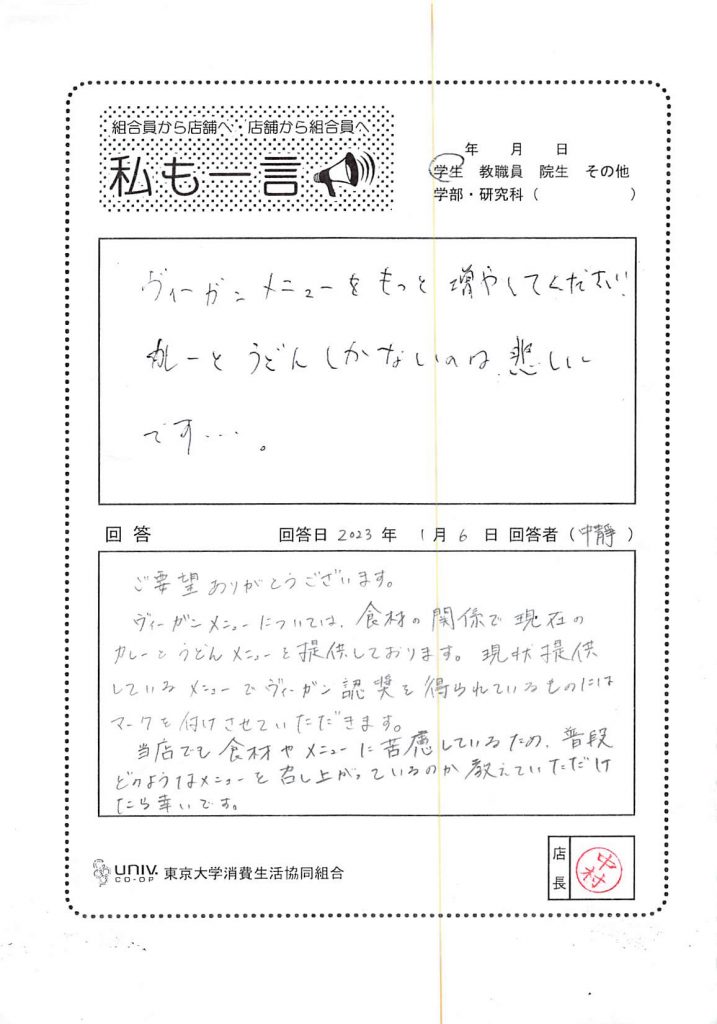 組合員から店舗へ・店舗から組合員へ
私も一言
年 月 日
学生 教職員 院生 その他
学部・研究科( )
ヴィーガンメニューをもっと増やしてください!
カレーとうどんしかないのは悲しい
です…。
回答 回答日 2023 年 1 月 6 日 回答者(中靜)
ご要望ありがとうございます。
ヴィーガンメニューについては、食材の関係で現在の
カレーとうどんメニューを提供しております。現状提供
しているメニューでヴィーガン認奨を得られているものには
マークを付けさせていただきます。
当店でも食材やメニューに苦慮しているため、普段
どのようなメニューを召し上がっているのか教えていただけ
たら幸いです。
UNIV.
CO-OP
東京大学消費生活協同組合
店長
中村